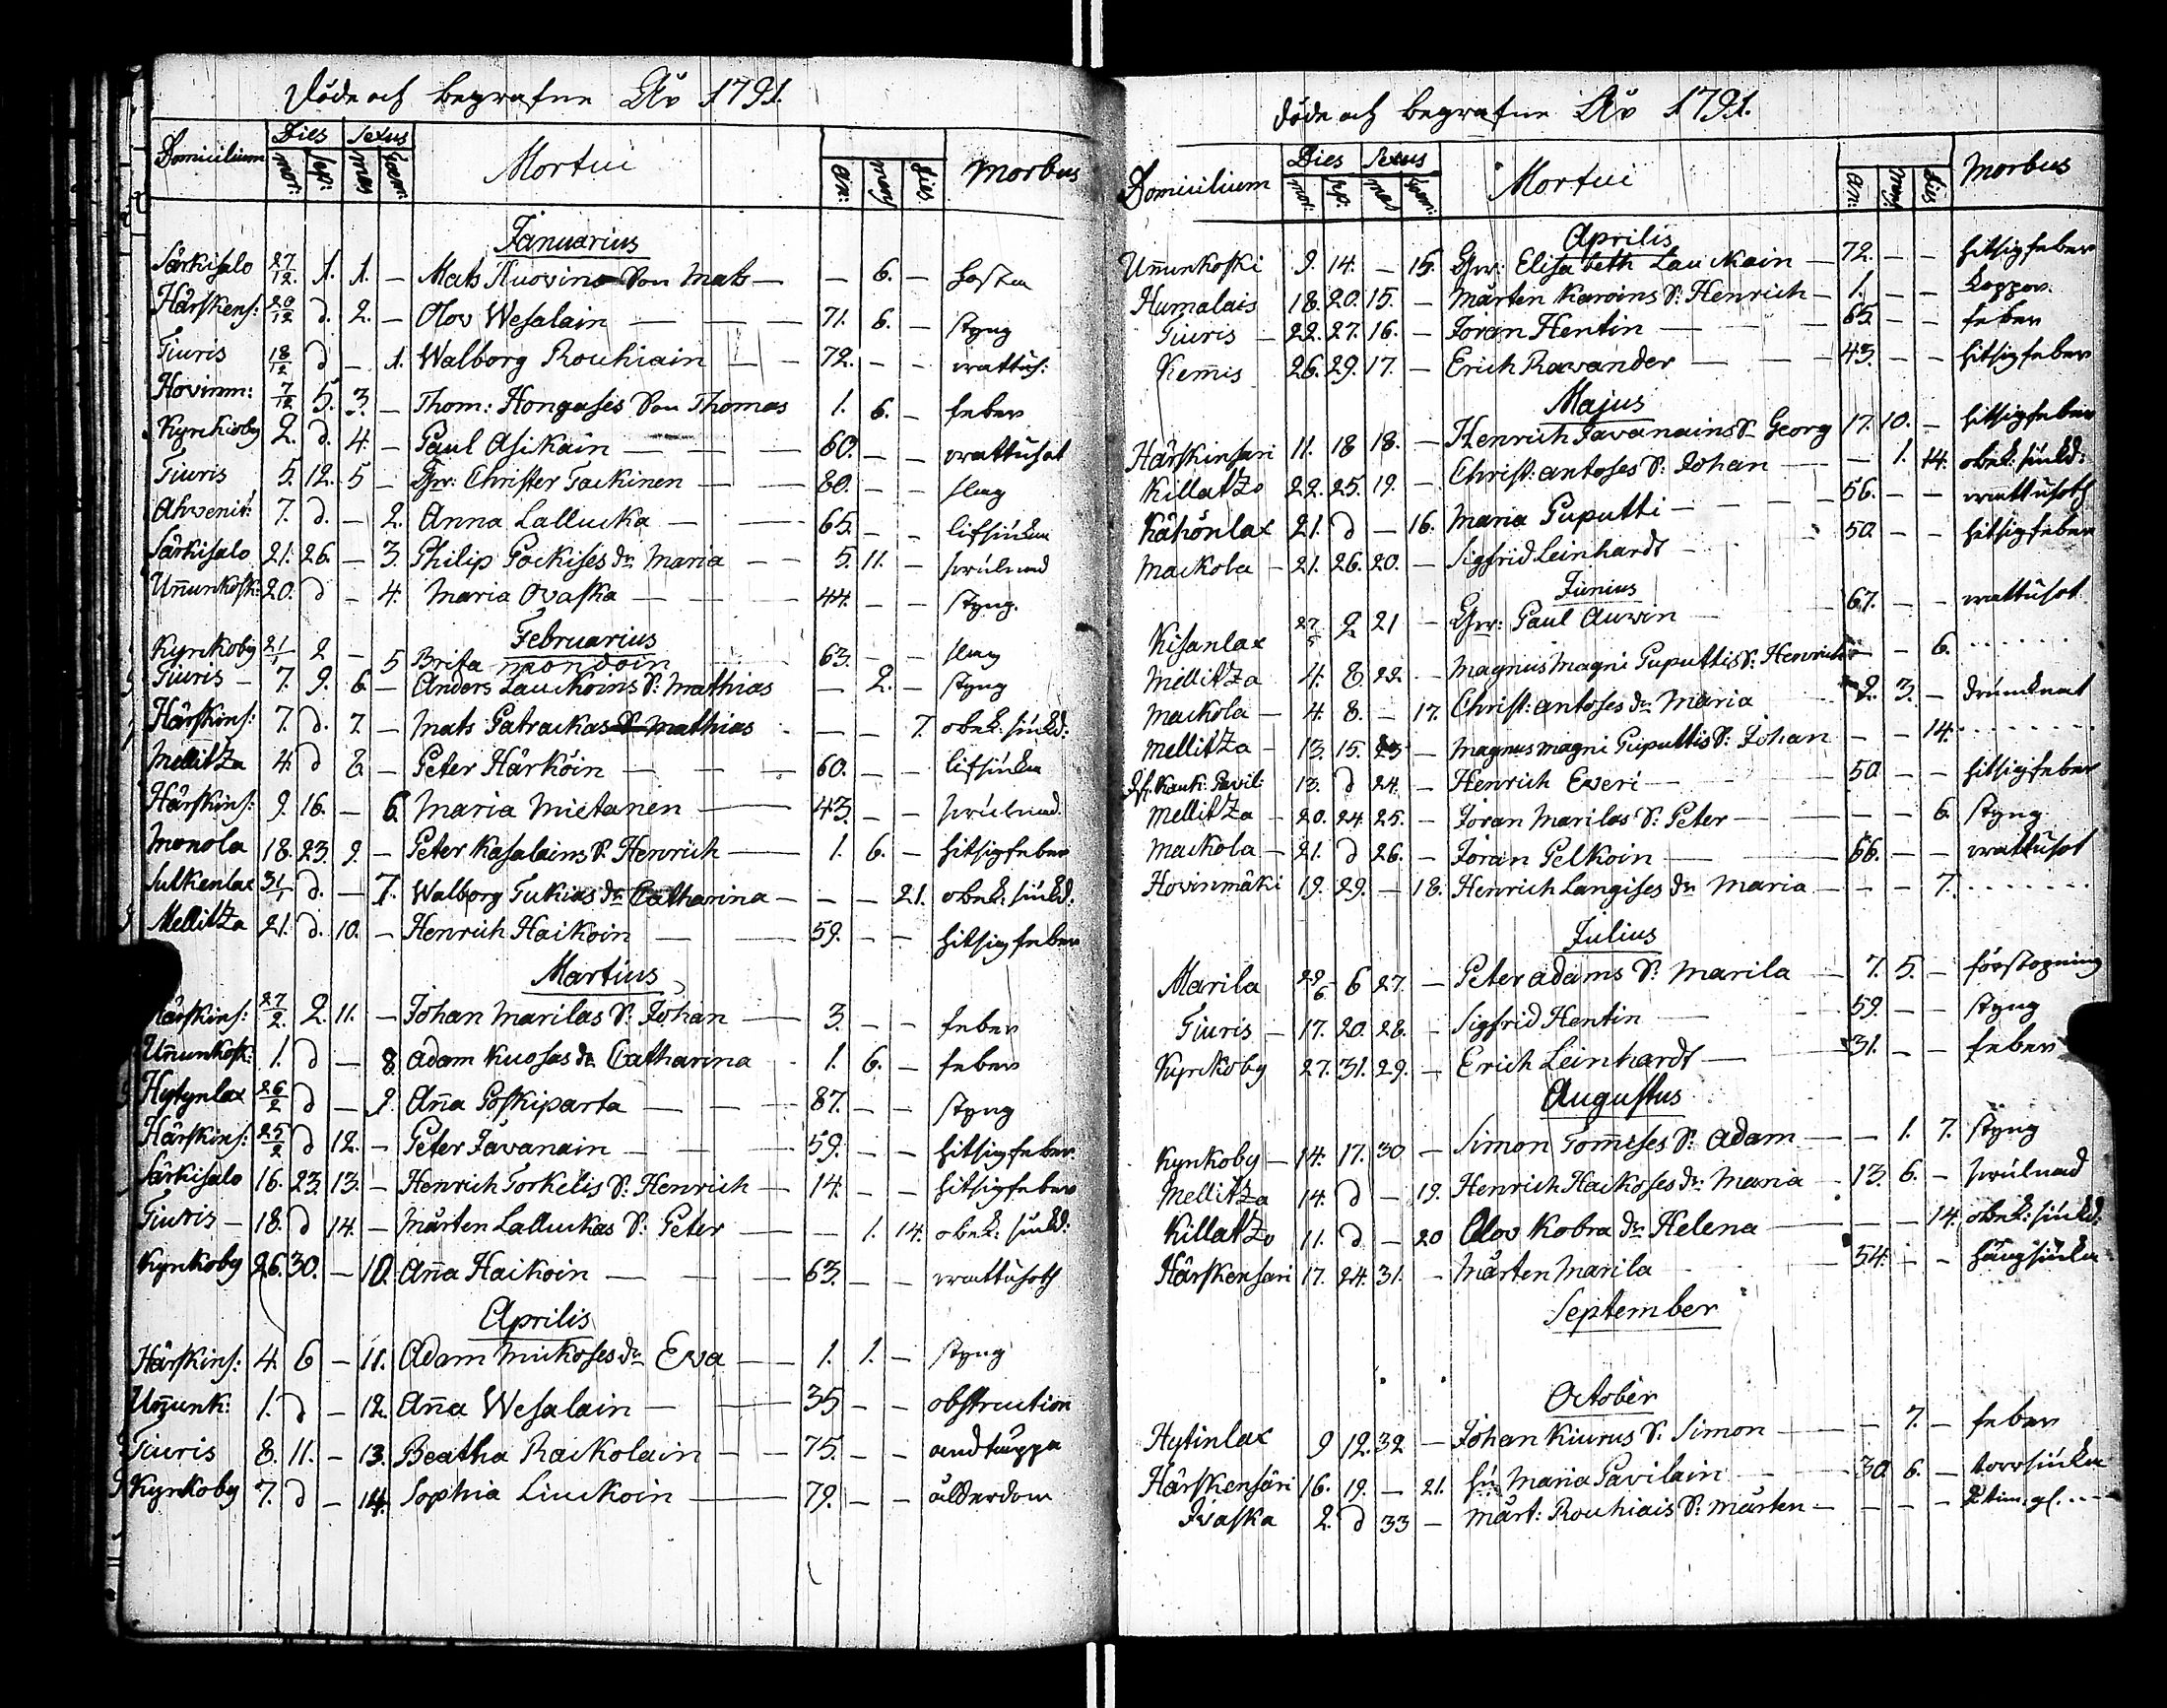 Döde och begrafne År 1791.
Domicilium Dies Sexus Mortui Morbus
mor: sep: mas foem: an: mens dies
Januarius
Särkisalo 27/12. 1. 1. – Mats Kuovino Son Mats – – 6. – hosta
Härskens: 20/12 d. 2. – Olov Wesalain – – – 71. 6. – styng
Tiuris 18/12 d – 1. Walborg Rouhiain – – 72. – – wattus:
Hovinm: 7/12 5. 3. – Thom: Hongases Son Thomas 1. 6. – feber
Kyrkioby 2. d. 4. – Paul Asikain – – – 60. – – wattusot
Tiuris 5. 12. 5 – Gw: Christer Tackinen – – 80. – – slag
Ahvenit: 7. d. – 2. Anna Lallucka – – 65. – – lifsiuka
Särkisalo 21. 26. – 3. Philip Pockises dr Maria – – 5. 11. – swulnad
Uñunkosk: 20. d – 4. Maria Ovaska – – – 44. – – styng.
Februarius
Kyrkoby 21/1 2 – 5 Brita mondoin 63. – – slag
Tiuris – 7. 9. 6. – Anders Lauckoins S: Mathias – 2. – styng
Härskins: 7. d. 7. – Mats Patrackas S Mathias – – 7. obek: siukd.
Mellitza 4. d 8. – Peter Härköin – – – 60. – – lifsiuka
Härskins: 9. 16. – 6. Maria Mietanen – 43. – – swulnad.
Monola 18. 23. 9. – Peter Kasalains S. Henrich – 1. 6. – hitsig feber
Sulkenlax 31/1 d. – 7. Walborg Tukias dr Catharina – – – 21. obek: siukd.
Mellitza 21. d. 10. – Henrich Haikoin – – 59. – – hitsig feber
Martius
Härskins: 27/2. 2. 11. – Johan Marilas S: Johan – 3. – – feber
Uñunkosk: 1. d – 8 Adam Kuosas dr Catharina 1. 6. – feber
Hytynlax 26/2 d – 9. Aña Poskiparta – – – 87. – – styng
Härskins: 25/2 d 12. – Peter Javanain – – 59. – – hitsig feber
Särkisalo 16. 23. 13. – Henrich Torkelis S: Henrich – 14. – – hitsig feber
Tiuris – 18. d 14. – Mårten Lalluckas S: Peter – – 1. 14. obek: siukd:
Kyrkoby 26. 30. – 10. Aña Haikoin – – – 63. – – wattusoth
Aprilis
Härskins: 4. 6 – 11. Adam Mickoses dr Eva – – 1. 1. – styng
Uñunk: 1. d – 12. Aña Wesalain – – 35 – – obstruction
Tiuris 8. 11. – 13. Beatha Rackolain – – 75. – – andtäppa
Kyrkoby 7. d – 14. Sophia Liuckoin – 79. – – ålderdom
Döde och begrafne År 1791.
Domicilium Dies Sexus Mortui Morbus
mor: sep: mas foem: an: mens dies
Aprilis
Uñunkoski 9. 14. – 15. Gw: Elisabeth Lauckain – 72. – – hitsig feber
Humalais 18. 20. 15. – Mårten Karvins S: Henrich – 1. – – koppor.
Tiuris – 22. 27. 16. – Jöran Hentin – – – 65. – – feber
Kem̃is 26. 29. 17. – Erich Ravander – – 43. – – hitsig feber
Majus
Härskinsari 11. 18 18. – Henrich Javanains S– Georg 17. 10. – hitsig feber
Killatzo 22. 25. 19. – Christ: Antoses S: Johan – – 1. 14. obek: siukd:
Kähönlax 21. d – 16. Maria Puputti – – – 56. – – wattusoth
Mackola – 21. 26. 20. – Sigfrid Leinhardt – 50. – – hitsig feber
Junius
Kisanlax 27/5 2 21 – Gw: Paul Auvin – 67. – – wattusot
Mellitza 4. 8 22. – Magnus Magni Puputtis S: Henrich – – 6. . . . . . .
Mackola – 4. 8. – 17. Christ: Antoses dr Maria 2. 3. –
Mellitza – 13. 15. 23 – Magnus Magni Puputtis S: Johan – – 14. . . . . . .
Kauk: Pavil: 13. d 24. – Henrich Everi – 50 – – hitsig feber
Mellitza – 20. 24 25. – Jöran Marilas S: Peter – – – – 6. styng
Mackola – 21. d 26. – Jöran Pelkoin – – 66. – – wattusot
Hovinmäki 19. 29. – 18. Henrich Langises dr Maria – – – 7. . . . . . .
Julius
Marila 29/6 6 27. – Peter Adams S: Marila – 7. 5. – förstopning
Tiuris – 17. 20. 28. – Sigfrid Hentin – 59. – – styng
Kyrkoby 27. 31. 29. – Erich Leinhardt – 31. – – feber
Augustus
Kyrkoby – 14. 17. 30 – Simon Tom̃ises S: Adam – – 1. 7. styng
Mellitza 14. d – 19. Henrich Haikoses dr: Maria – 13. 6. – swulnad
Killatzo 11. d – 20 Olov Kobra dr Helena – – – 14. obek: siukd:
Härskensari 17. 24. 31. – Mårten Marila – 54. – – håugsiuka
September
October
Hytinlax 9 12. 32 – Johan Kiurus S: Simon – – 7. – feber
Härskensäri 16. 19. – 21. hu: Maria Pavilain – 30 6. – torrsiuka
Ivaska 2. d 33 – Mårt: Rouhiais S: Mårten – – – – 2 tim. gl. . . .